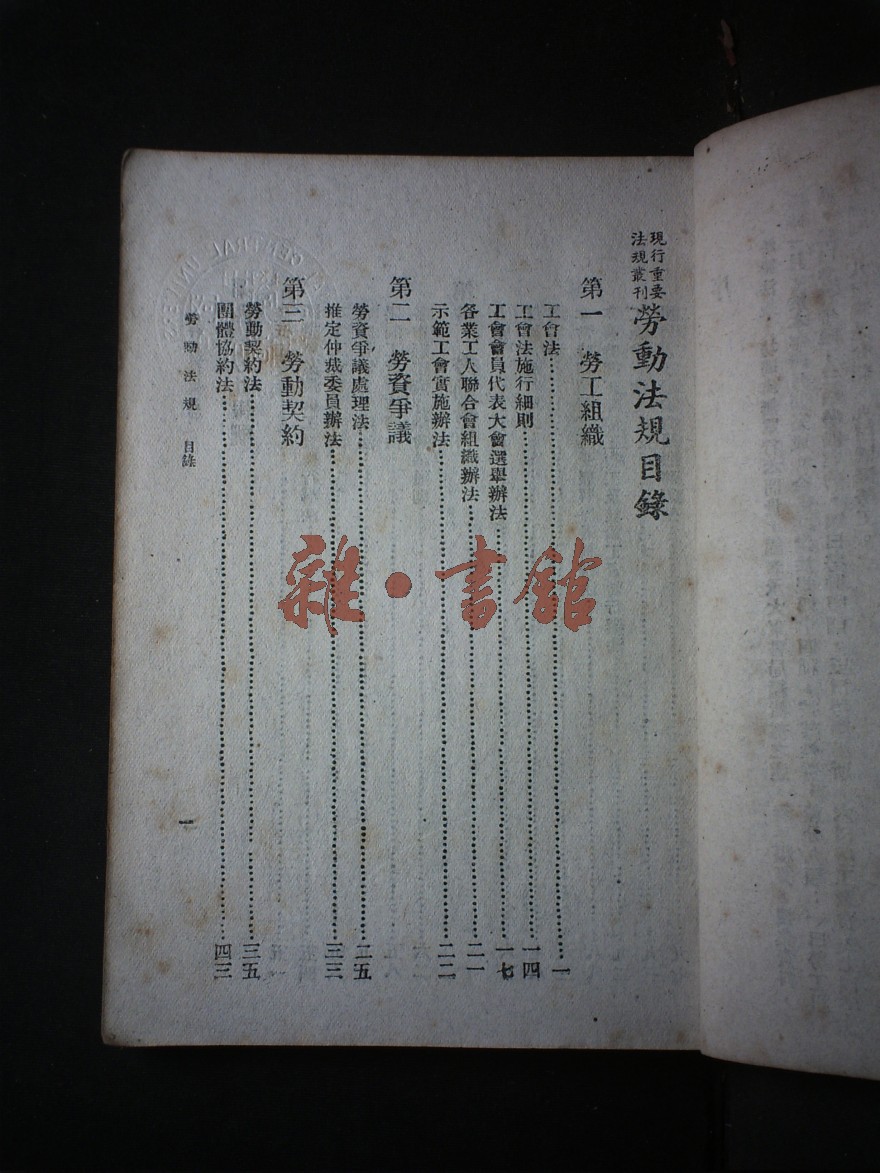 現行重要
法規叢刊
勞動法規目錄
第一 勞工組織
工會法……一
工會法施行細則……一四
工會會員代表大會選舉辦法……一七
各業工人聯合會組織辦法……二一
示範工會實施辦法……二二
第二 勞資爭議
勞資爭議處理法……二五
推定仲裁委員辦法……三三
第三 勞動契約
勞動契約法……三五
團體協約法……四三
勞動法規 目錄
一
雜·書館
CENTRAL